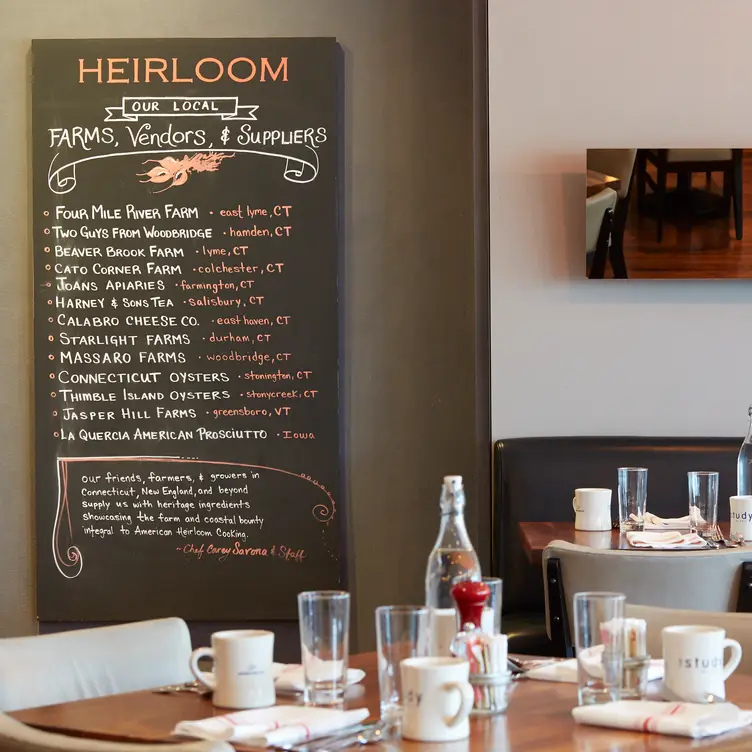 HEIRLOOM
OUR LOCAL
FARMS, Vendors, & SUPPLIERS
FOUR MILE RIVER FARM · east lyme, CT
TWO GUYS FROM WOODBRIDGE · hamden, CT
BEAVER BROOK FARM · lyme, CT
CATO CORNER FARM · colchester, CT
JOANS APIARIES · farmington, CT
HARNEY & SONS TEA · Salisbury, CT
CALABRO CHEESE CO. · east haven, CT
STARLIGHT FARMS · durham, CT
MASSARO FARMS · woodbridge, CT
CONNECTICUT OYSTERS · stonington, CT
THIMBLE ISLAND OYSTERS · stonycreek, CT
JASPER HILL FARMS · greensboro, VT
LA QUERCIA AMERICAN PROSCIUTTO · Iowa
our friends, farmers, & growers in
Connecticut, New England, and beyond
supply us with heritage ingredients
showcasing the farm and coastal bounty
integral to American Heirloom Cooking.
~Chef Carey Savona & Staff
study
study
dy